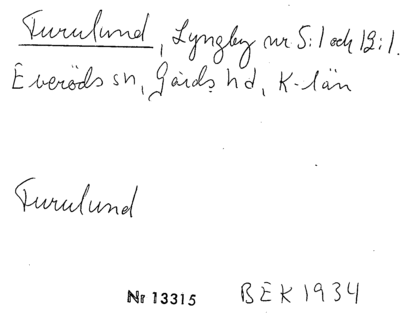 Furulund, Lyngby nr 5:1 och 12:1.
Everöds sn, Gärds hd, K-län
Furulund
Nr 13315 BEK 1934